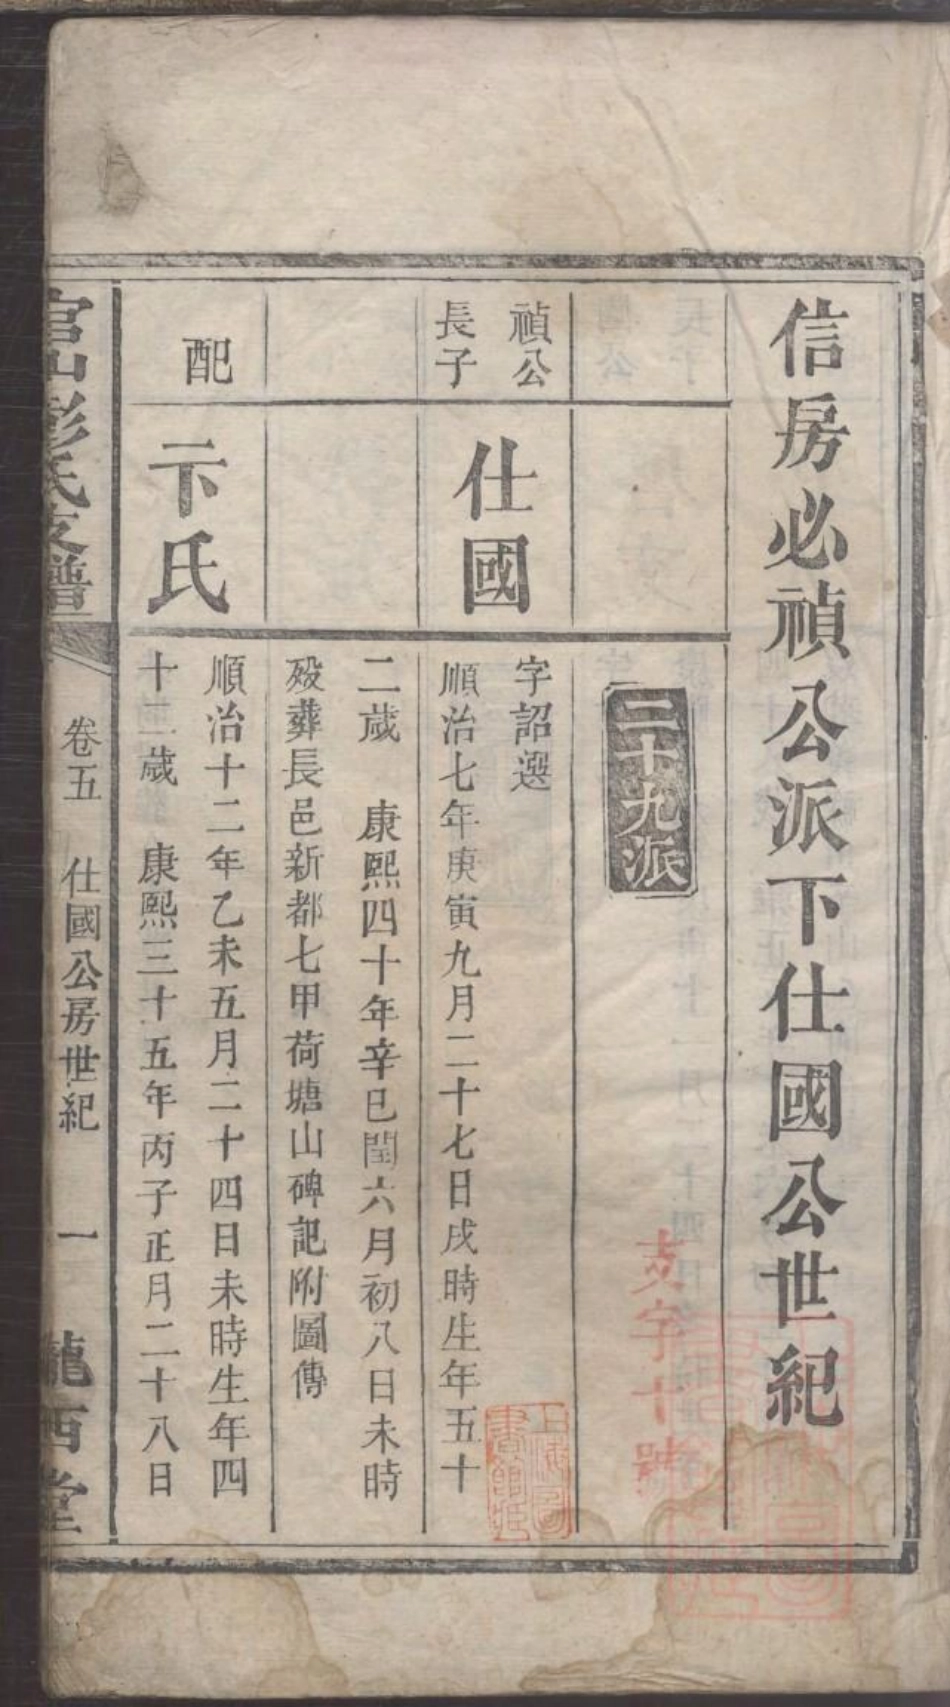 信房必禎公派下仕國公世紀
二十九派
禎公
長子
仕國
字詔選
順治七年庚寅九月二十七日戌時生年五十
二歲 康熙四十年辛巳閏六月初八日未時
歿葬長邑新都七甲荷塘山碑記附圖傳
配
卞氏
順治十二年乙未五月二十四日未時生年四
十二歲 康熙三十五年丙子正月二十八日
官山彭氏支譜
卷五 仕國公房世紀 一
龍西堂
支字十號
上海圖
書館藏